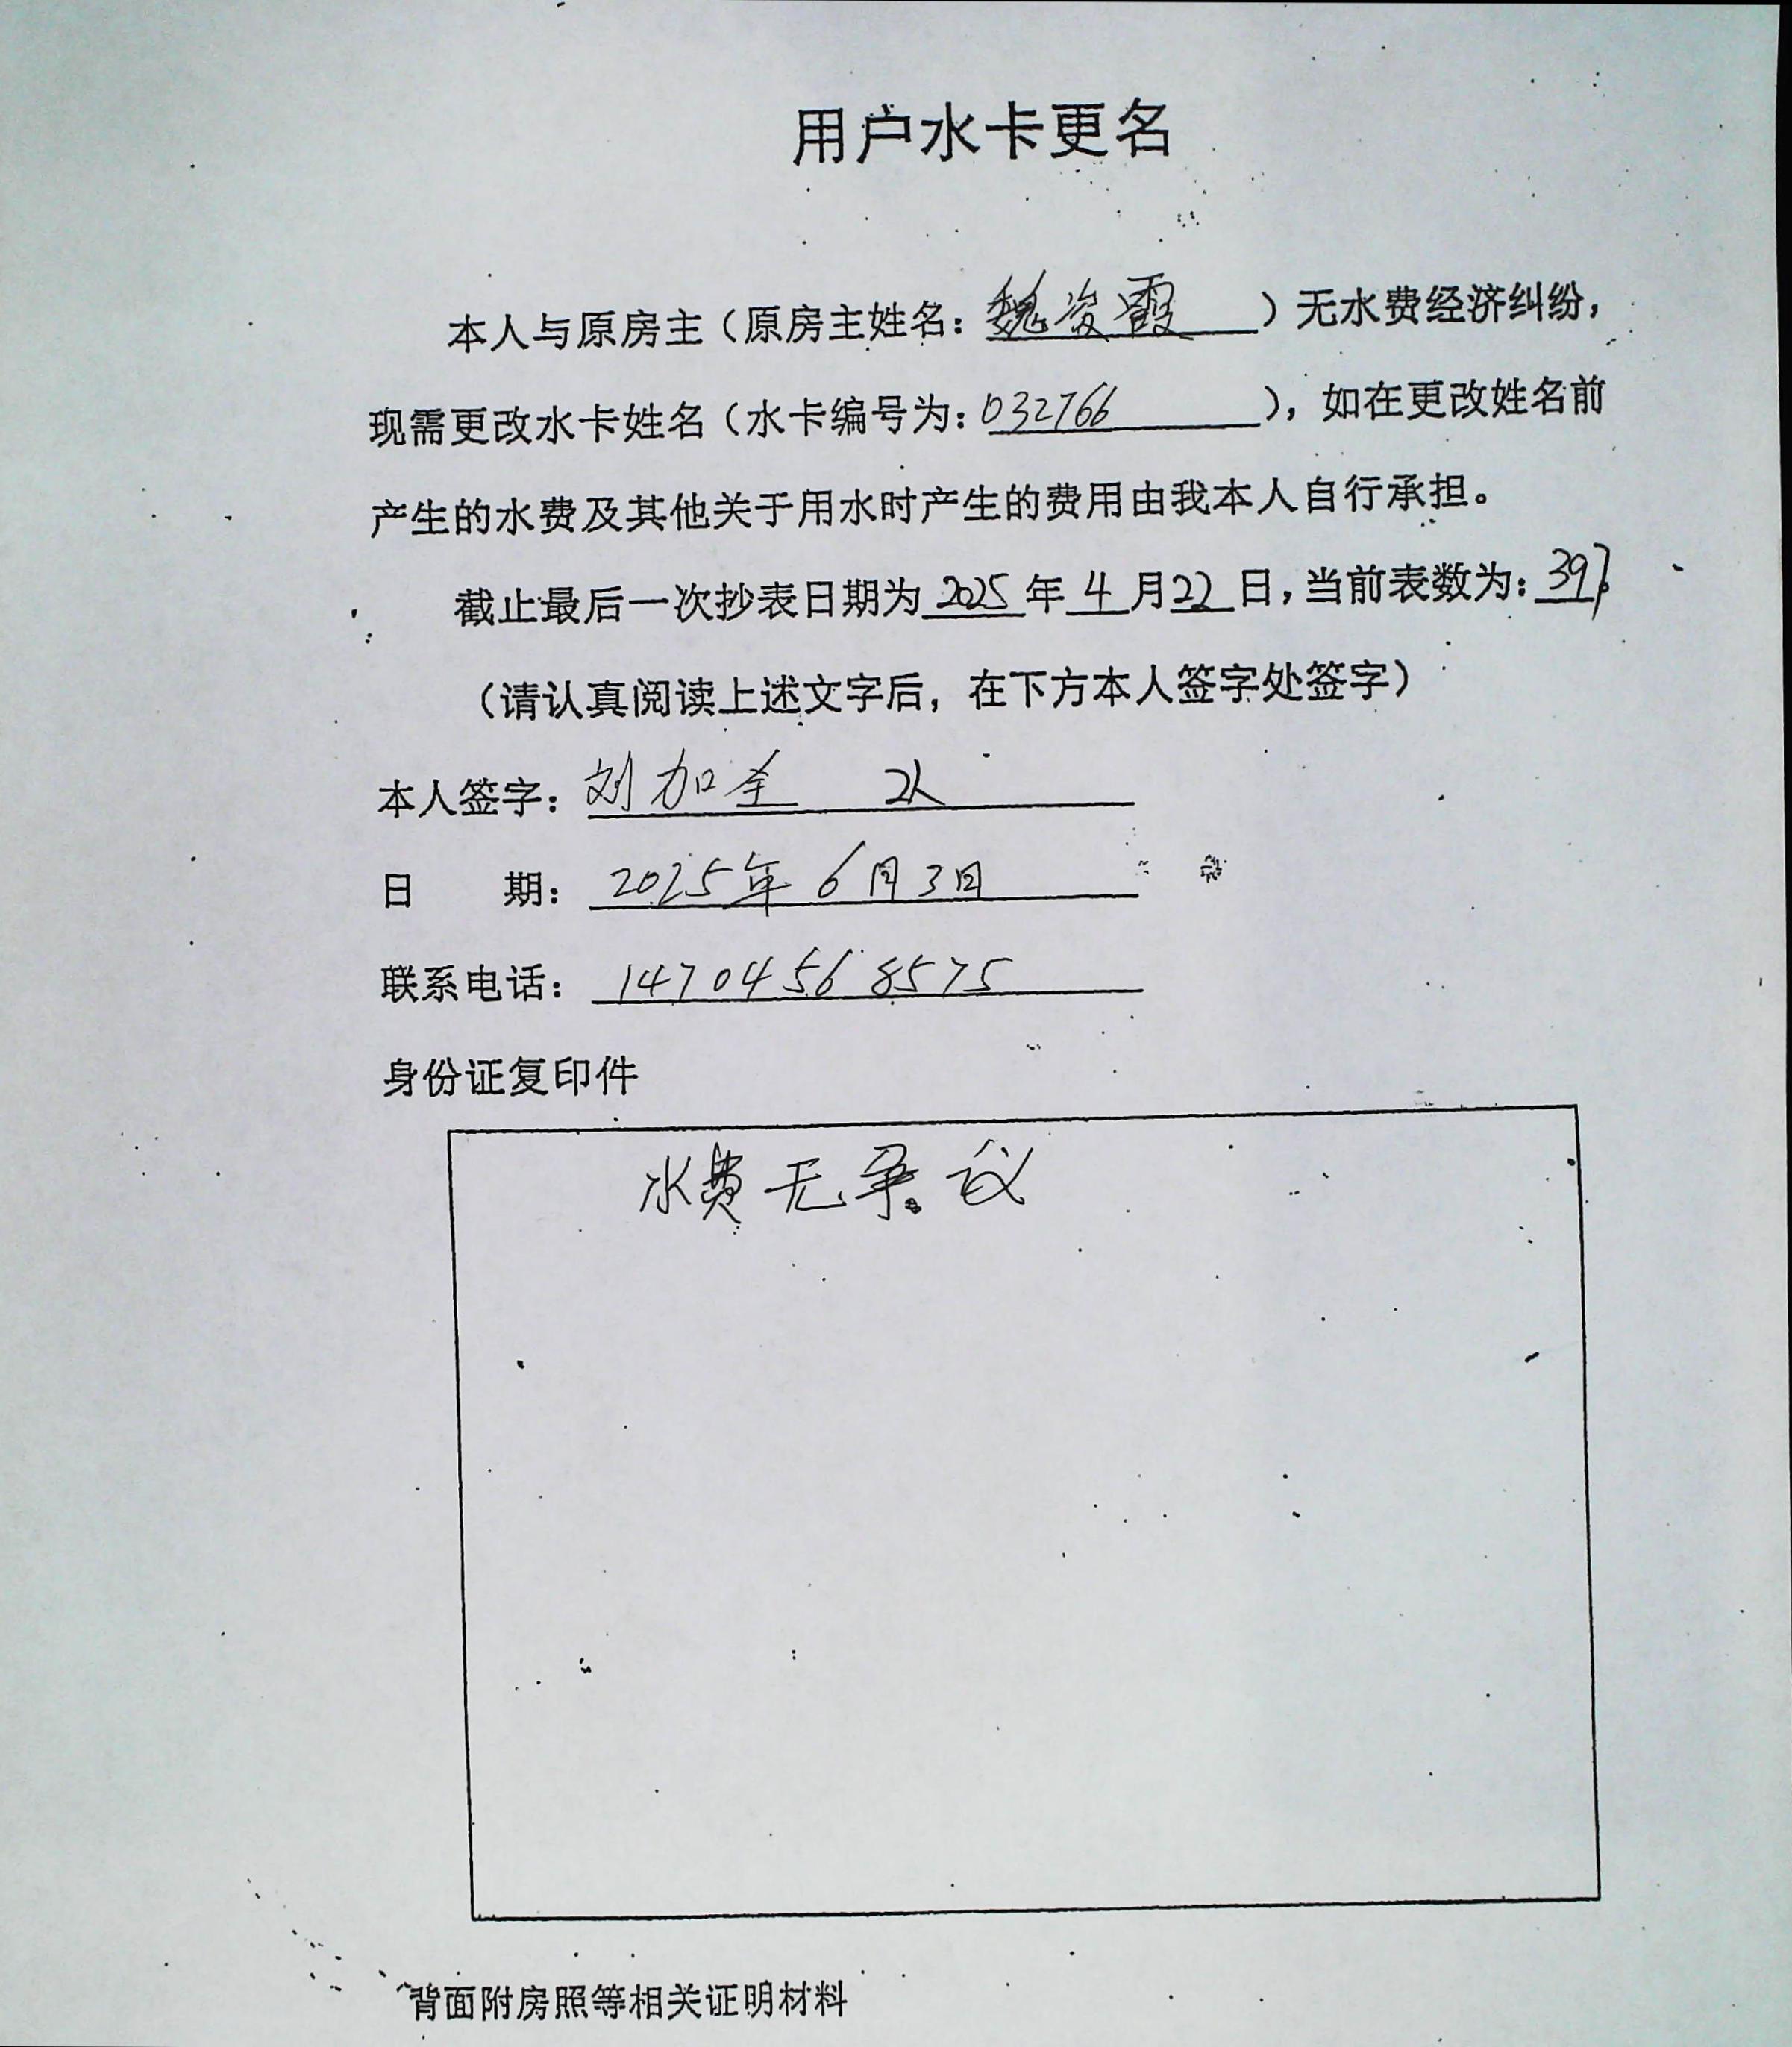 用户水卡更名
本人与原房主（原房主姓名：魏俊霞）无水费经济纠纷，
现需更改水卡姓名（水卡编号为：032766），如在更改姓名前
产生的水费及其他关于用水时产生的费用由我本人自行承担。
截止最后一次抄表日期为2025年4月22日，当前表数为：397。
（请认真阅读上述文字后，在下方本人签字处签字）
本人签字：刘加全 2人
日 期：2025年6月3日
联系电话：14704568575
身份证复印件
水费无争议
背面附房照等相关证明材料